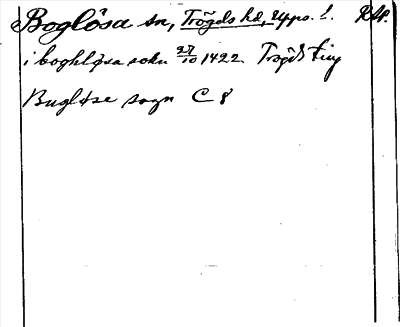 Boglösa sn, Trögds hd, Upps. l. RAp.
i boghløsa sokn 27/10 1422 Trögds ting
Bugløse sogn C 8